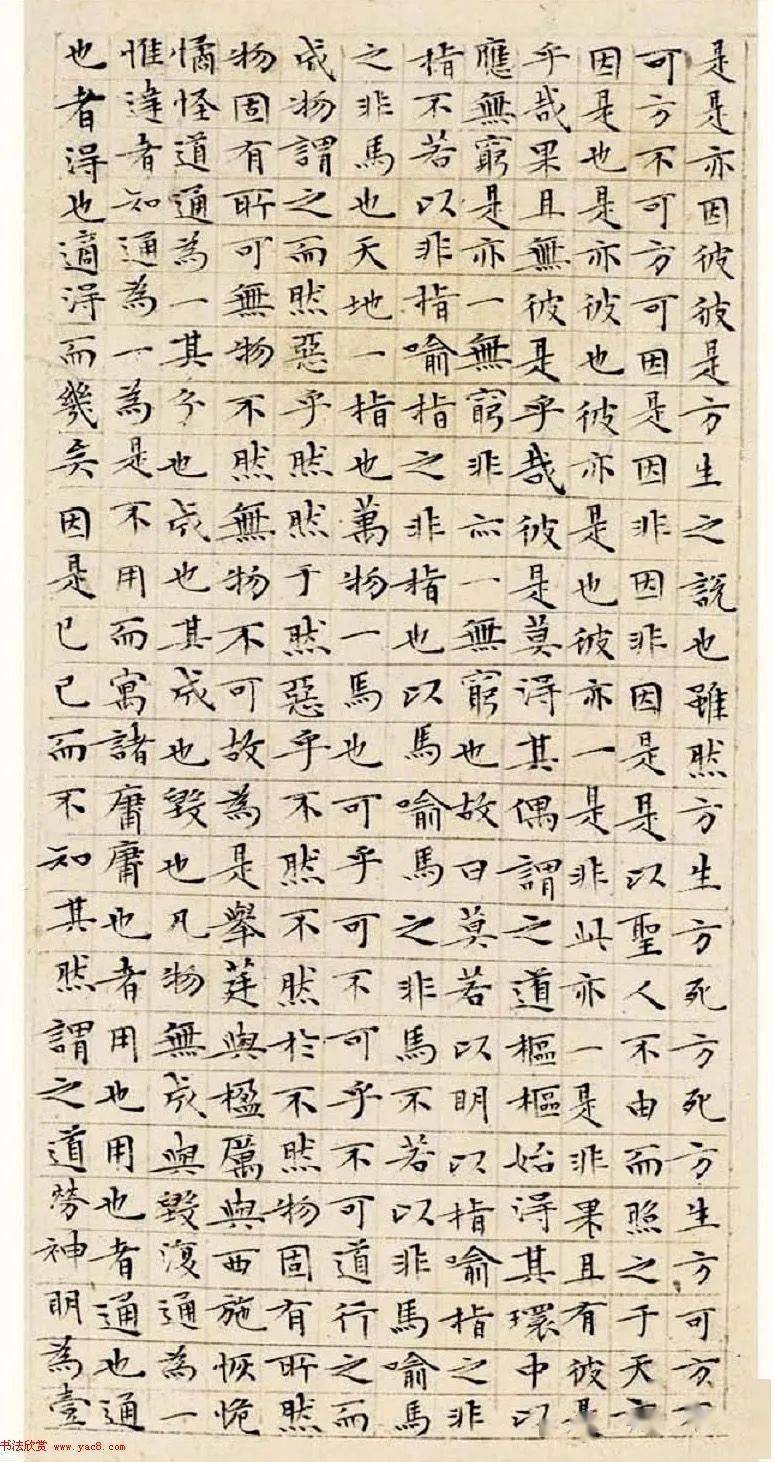 是是亦因彼彼是方生之說也雖然方生方死方死方生方可方不
可方不可方可因是因非因非因是是以聖人不由而照之于天
因是也是亦彼也彼亦是也彼亦一是非此亦一是非果且有彼是
乎哉果且無彼是乎哉彼是莫得其偶謂之道樞樞始得其環中以
應無窮是亦一無窮非亦一無窮也故曰莫若以明以指喻指之非
指不若以非指喻指之非指也以馬喻馬之非馬不若以非馬喻馬
之非馬也天地一指也萬物一馬也可乎可不可乎不可道行之而
成物謂之而然惡乎然然于然惡乎不然不然於不然物固有所然
物固有所可無物不然無物不可故為是舉莛與楹厲與西施恢恑
憰怪道通為一其分也成也其成也毀也凡物無成與毀復通為一
惟達者知通為一為是不用而寓諸庸庸也者用也用也者通也通
也者得也適得而幾矣因是已已而不知其然謂之道勞神明為壹
书法欣赏 www.yac8.com